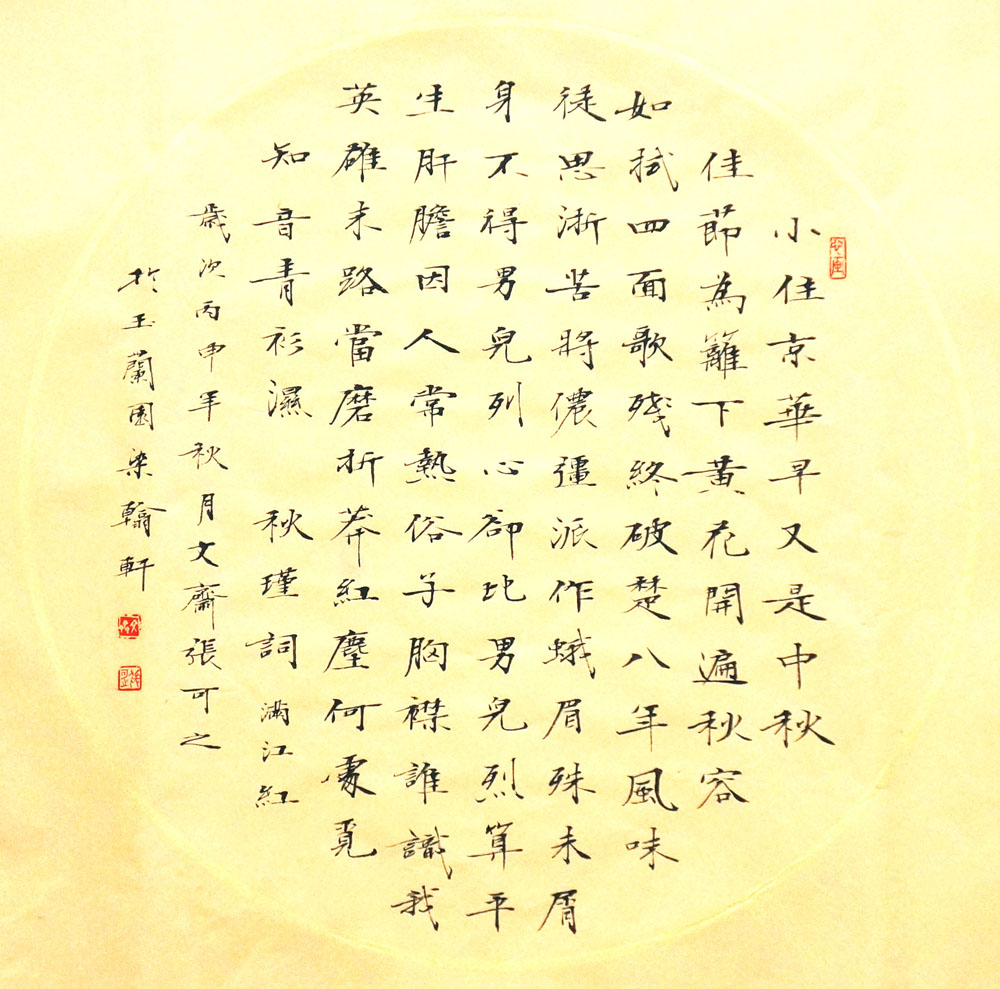 小住京華早又是中秋
佳節為籬下黃花開遍秋容
如拭四面歌殘終破楚八年風味
徒思浙苦將儂彊派作蛾眉殊未屑
身不得男兒列心卻比男兒烈算平
生肝膽因人常熱俗子胸襟誰識我
英雄末路當磨折莽紅塵何處覓
知音青衫濕 秋瑾詞 滿江紅
歲次丙申年秋月文齋張可之
於玉蘭園染翰軒